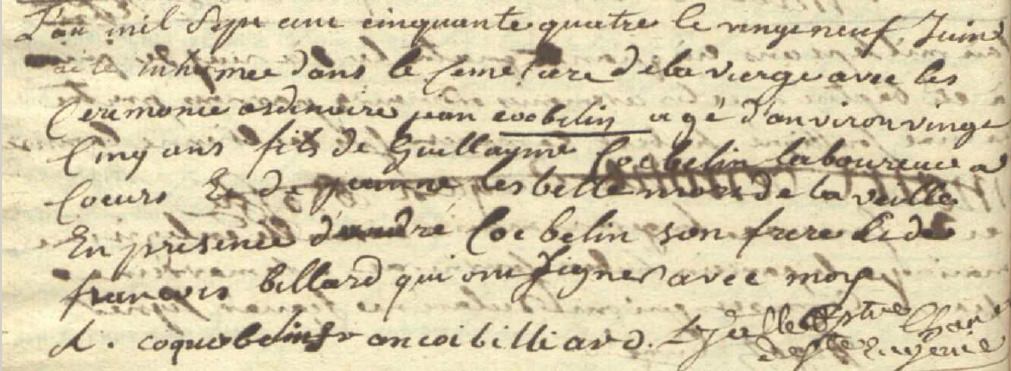 L'an mil Sept cent cinquante quatre le vingt neuf Juin
a ete inhumée dans le Cemetiere de la vierge avec les
Ceremonie ordinaire jean cocbelin agé d'anviron vingt
Cinq ans fils de Guillaume Cocbelin laboureur a
Coeurs Et de jeanne les belle mort de la veille
En presence d'andré Cocbelin son frere Et de
francois billard qui ont Signer avec moy
A. coquebelin francoi billiard.